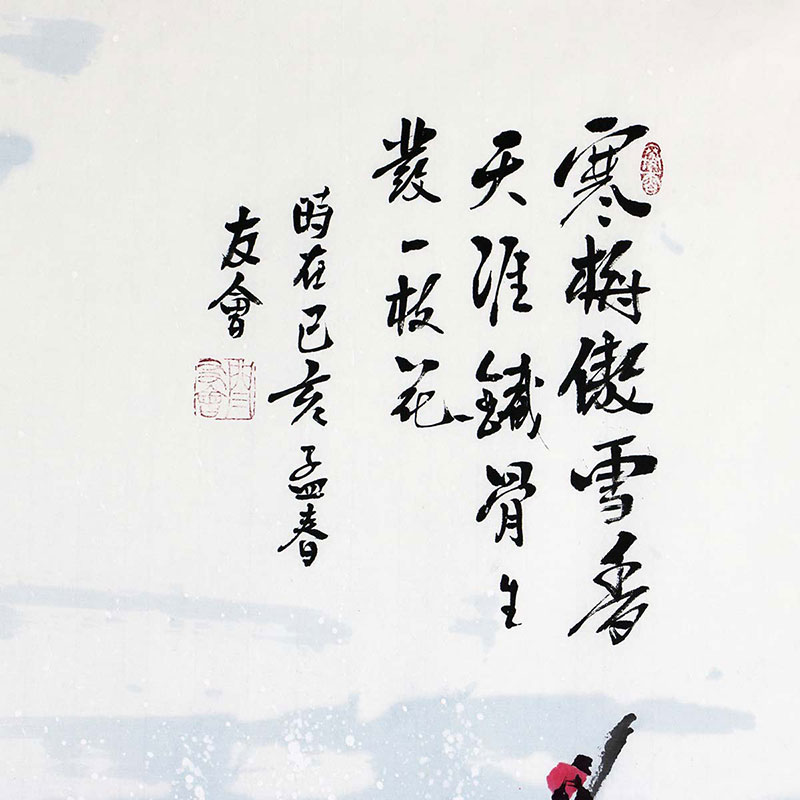 寒梅傲雪香
天涯鐵骨生
發一枝花
時在己亥孟春
友會